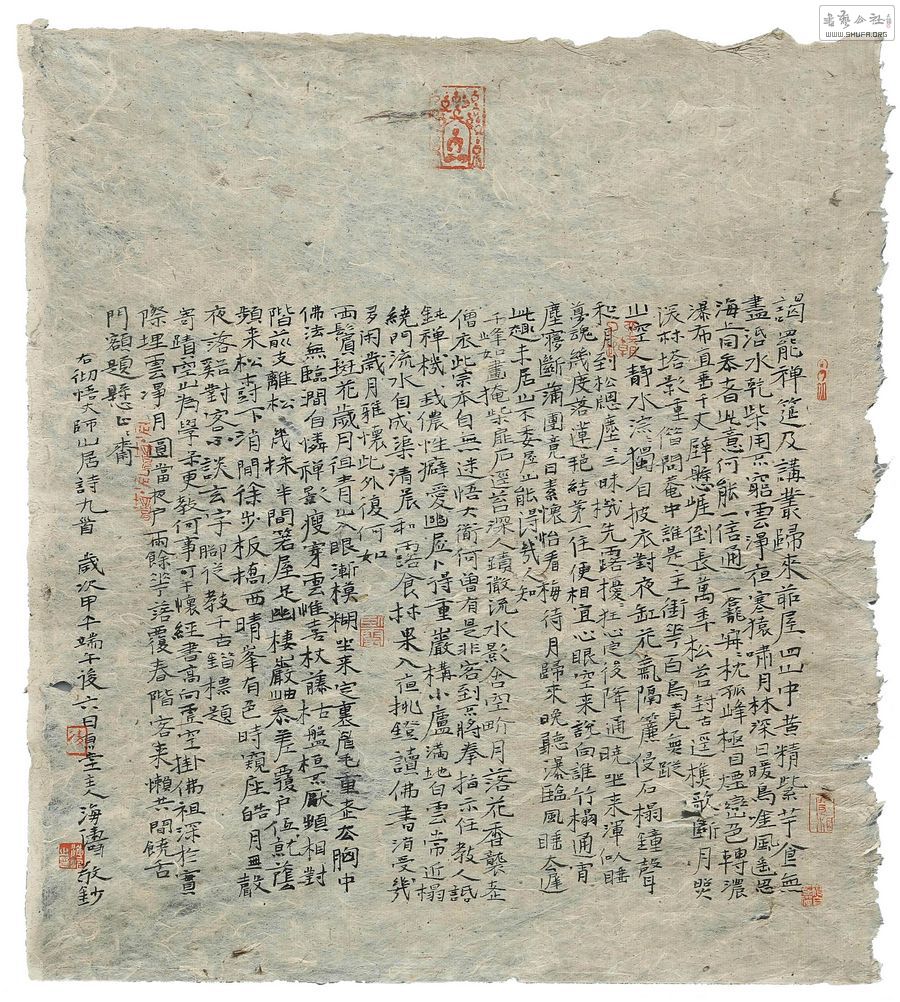 謁罷禅筵及講叢歸來茆屋四山中黃精紫芋食無
盡活水乾柴用不窮雲淨夜寒猿嘯月林深日暖鳥啼風遙思
海岸參者此意何能一信通一龕冊枕孤峰極目煙巒色轉濃
瀑布直垂千丈壁懸崖倒長萬年松苔封古逕樵歌斷月照
深林塔影重借問菴中誰是主街華百鳥竟無蹤
山空人靜水淙獨自披衣對夜缸花氣隔簾侵石榻鐘聲
和月到松牕塵三昧機先露擾狂心定後降通曉坐來渾似睡
夢魂幾度落蓮結茅住便相宜心眼空來說向誰竹榻通宵
塵夢斷蒲團竟日素懷怡看梅待月歸來晚聽瀑臨風睡去遲
此趣未居山不委居山能得幾人知
千峰如畫掩柴扉石徑苔深人蹟微流水影空斷月落花香襲
僧衣此宗本自無迷悟大衛何曾有是非客到只將拳指示任教人話
鈍禪機我儂性癖愛幽居卜得重巖構小廬滿地白雲常近榻
繞門流水自成渠清晨和露食林果入夜挑鐙讀佛書消受幾
多閑歲月雅懷此外復何如
兩鬢斑花歲月徂青山入眼漸模糊坐來定裏眉毛重老去胸中
佛法無臨澗自憐禪影瘦穿雲惟喜杖藤枯盤桓不厭頻相對
階前支離松幾株半間茗屋足幽棲巖岫參差覆戶低蔭
頻來松樹下消閒徐步板橋西晴峯有色時窺座皓月無聲
夜落谿對客不談玄字腳從教千古錯標題
寄蹟空山為學柔更教何事可干懷經書高向雲空掛佛祖深於實
際埋雲淨月圓當夜戶雨餘華落覆春階客來懶共閒饒舌
門額題懸止止齋
右徹悟大師山居詩九首 歲次甲午端午後六日 海濤敬鈔
書藝公社
WWW.SHUFA.ORG